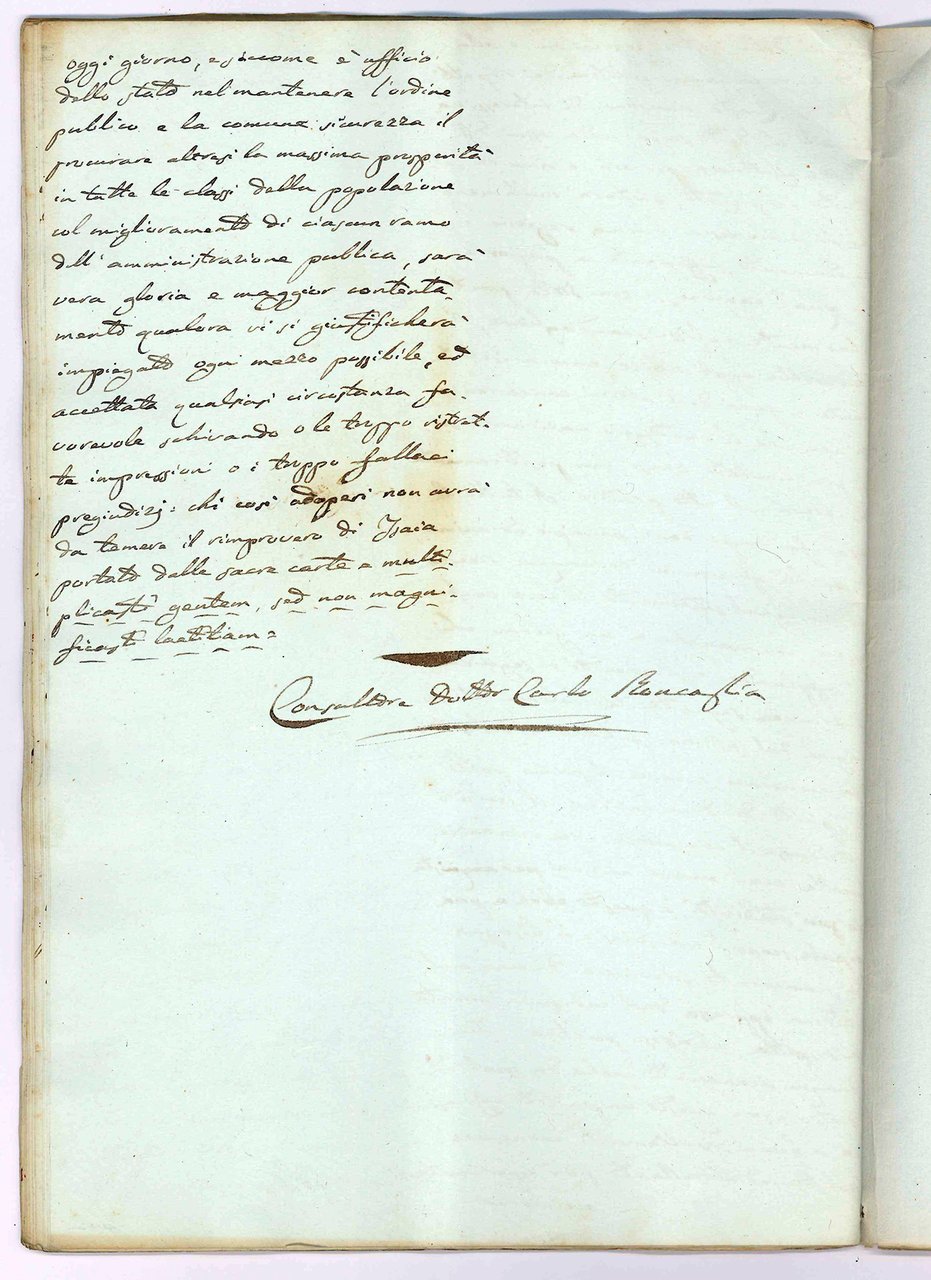 oggi giorno, e siccome è ufficio
dello stato nel mantenere l'ordine
publico e la comune sicurezza il
procurare altresì la massima prosperità
in tutte le classi della popolazione
col miglioramento di ciascun ramo
dell'amministrazione publica, sarà
vera gloria e maggior contenta-
mento qualora vi si giustificherà
impiegato ogni mezzo possibile, ed
accettata qualsiasi circostanza fa-
vorevole schivando o le troppo ristret-
te impressioni o i troppo fallaci
pregiudizj: chi così adoperi non avrà
da temere il rimprovero di Isaia
portato dalle sacre carte e multi-
plicasti gentem, sed non magni-
ficasti laetitiam =
Consultore Dottor Carlo Roncaglia